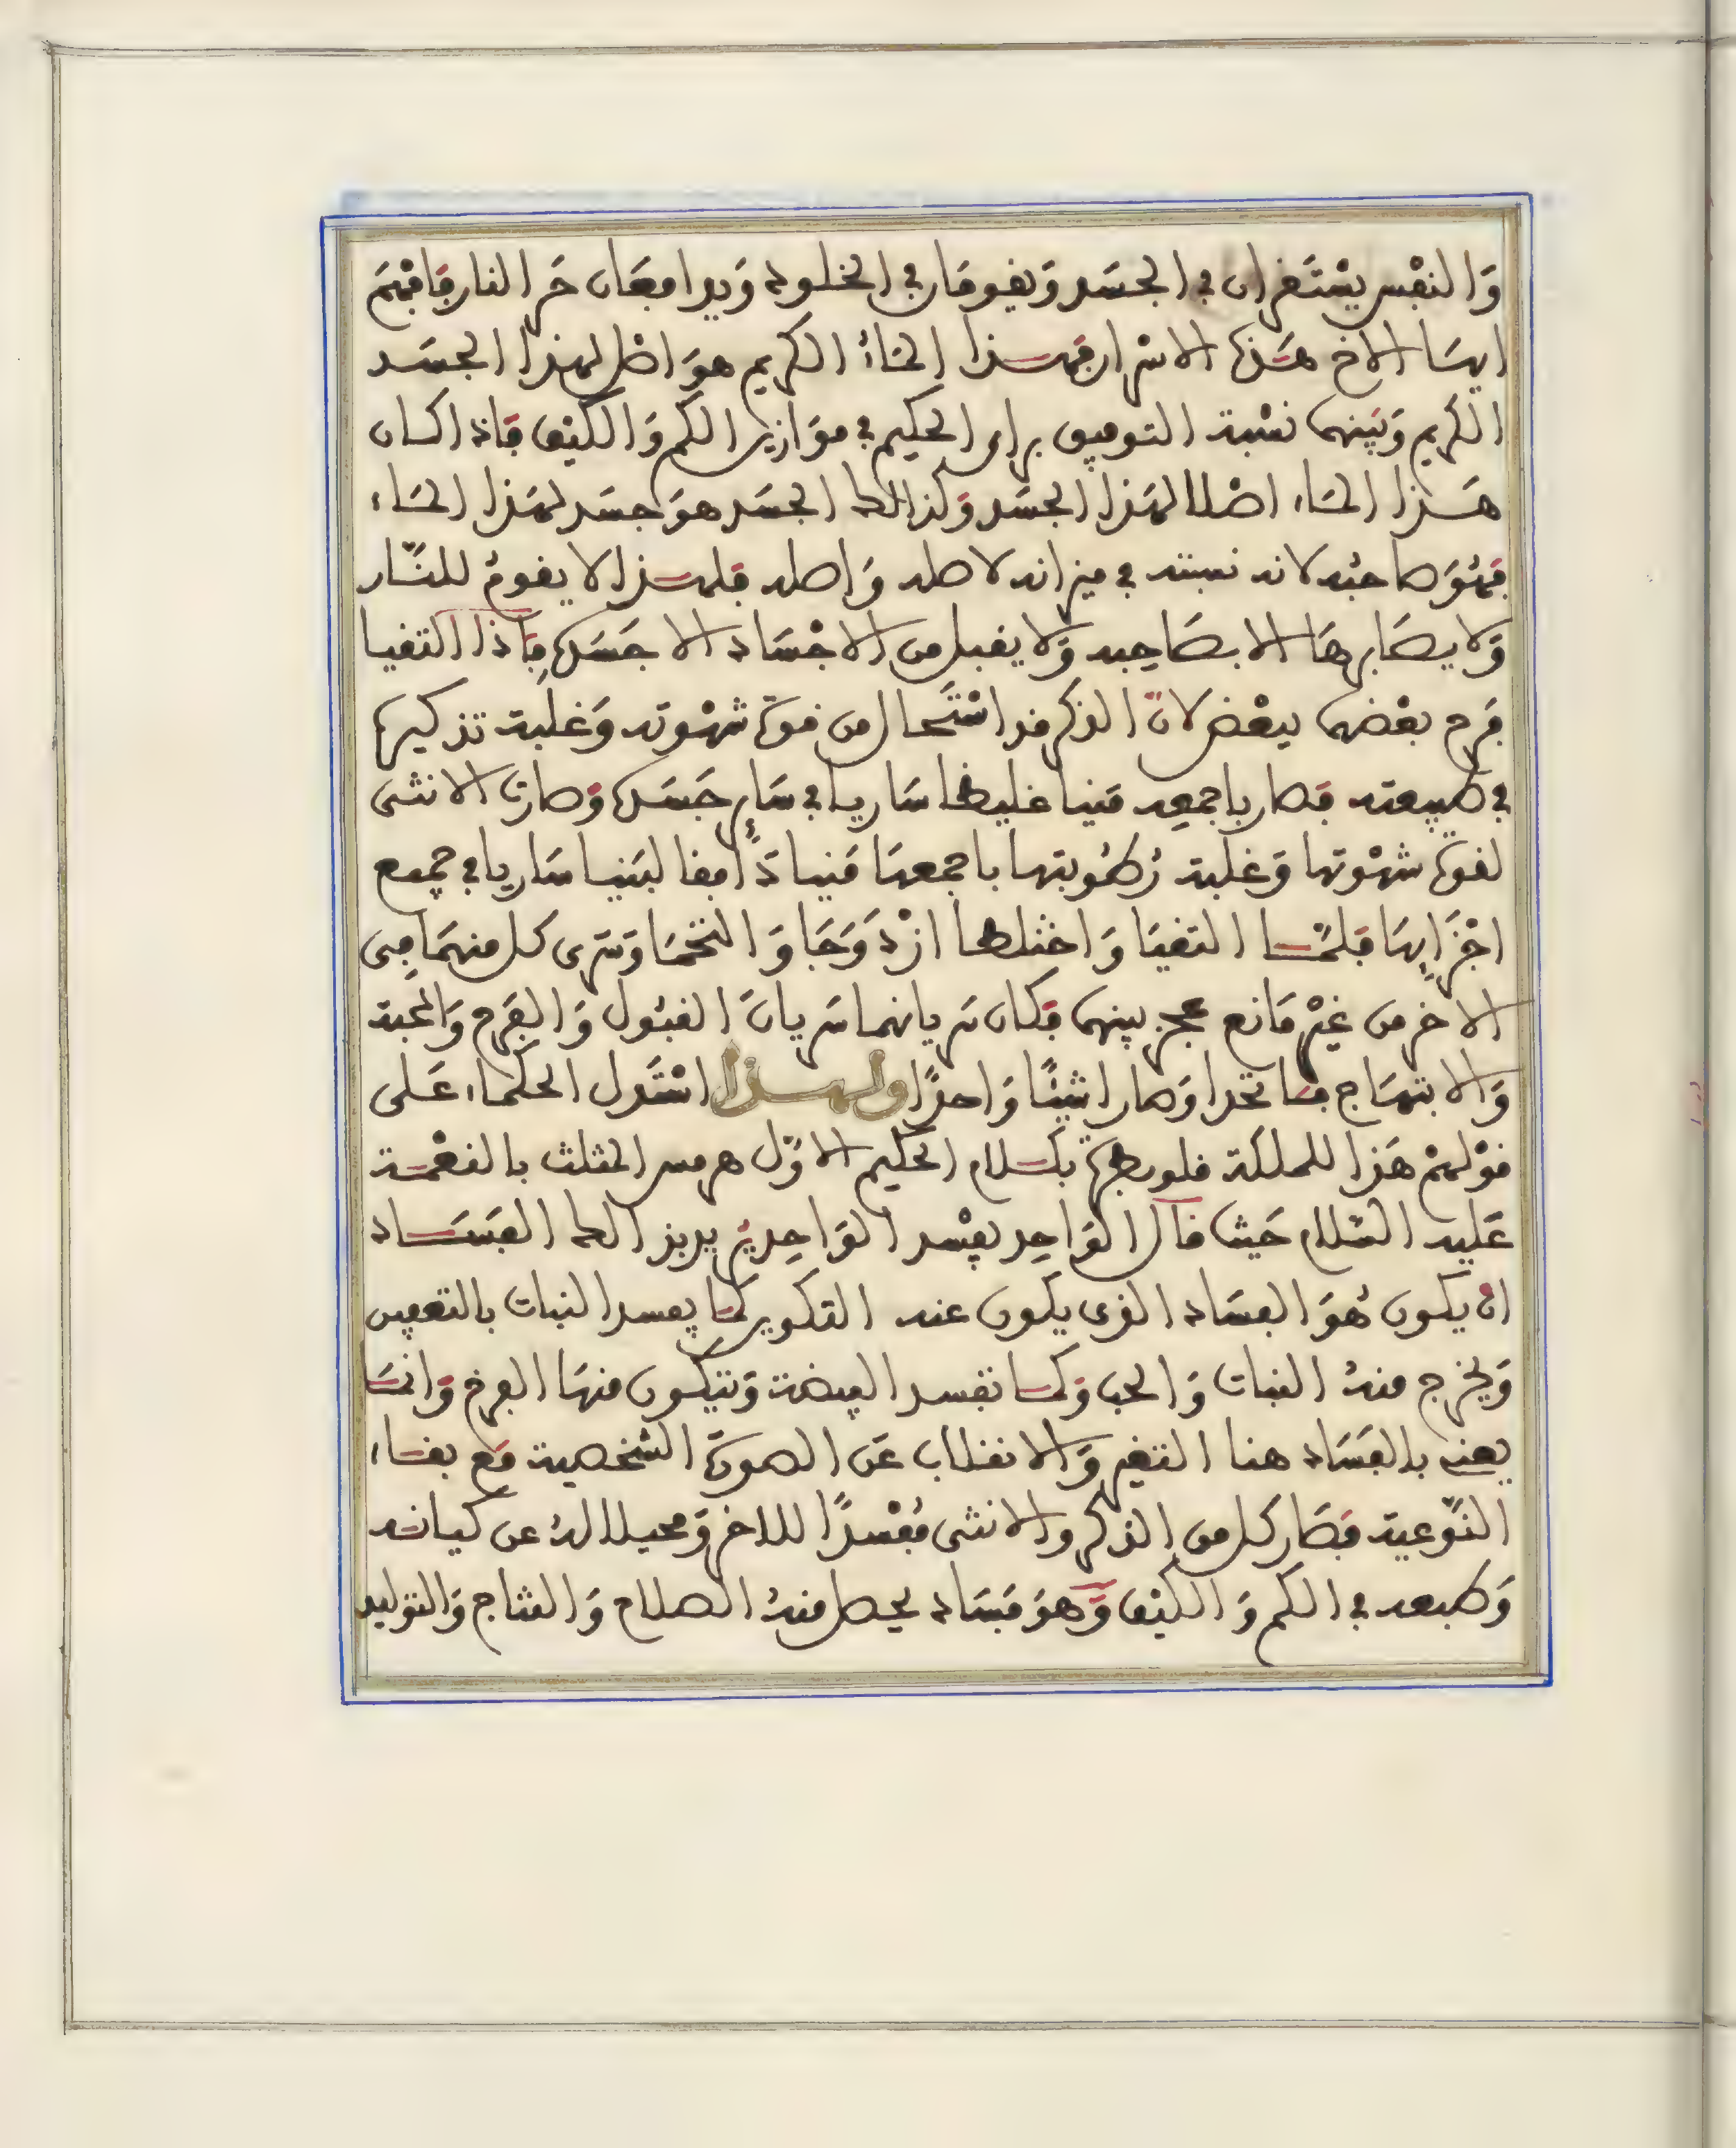 وَالنفْس يسْتَقران في الجسَد وَيقومَان في الخلود وَيدافعَان حَر النار فَافهَم
ايهَا الاخ هَذه الاسْرار فهَذا المَاءُ الكريم هوَ اصْل لهذا الجسَد
الكريم وَبَينهما نسْبة التوفيق براى الحكيم في موَازين الكم وَالكيْف فَاذا كان
هَذا المَاء اصْلا لهَذا الجسَد وَكذالك الجسَد هوَ جسَد لهَذا المَاء
فهُوَ صاحبُه لانه نسبته في ميزانه لاصله وَاصله فلهَذا لا يقومُ للنَّار
وَلا يصَابرهَا الا بصَاحِبه وَلا يقبل من الاجْسَاد الا جَسَده فَاذا التقيا
فَرح بعْضهما ببعْض لانّ الذكر قد اسْتَحال من قوة شهْوته وَغلبة تذكيره
في طبيعته فَصار باجمعِه مَنيا غليظا سَاريا في سَاير جَسَده وَصارت الانثى
لقوة شهْوتها وَغلبة رُطُوبتها باجمعهَا مَنيا دَافقا لبَنيا سَاريا في جميع
اجْزَايهَا فَلمَّا التقيَا وَاختلطا ازْدَوَجَا وَالتحَمَا وَسَرى كل منهمَا في
الاخر من غيْر مَانع يحجز بينهما فَكان سَريانهما سَريانَ القبُول وَالفَرح وَالمحَبة
وَالابتهَاج فَاتحدا وَصارا شيْئًا وَاحدًا ولهذا اسْتَدل الحكمَاء عَلى
قوْلهمْ هَذا للملكة قلوبطرة بكَلام الحكيم الاوّل هرمس المثلث بالنعْمَة
عَليه السَّلام حَيث قال الوَاحِد يفْسد الوَاحِد يُريد بذالك الفسَاد
ان يكون هُوَ الفسَاد الذى يكون عند التكوير كمَا يفسد النبات بالتعفين
وَيخرج منهُ النبات وَالحب وَكمَا تفسد البيضة وَتتكون منهَا الفرخ وَانمَا
يعني بالفَسَاد هنا التغير وَالانقلاب عَن الصورة الشخصية مَع بقاء
النَّوعية فَصَار كل من الذكر والانثى مُفْسدًا للاخر وَمحيلا لهُ عن كيانه
وَطبعه في الكم وَالكيْف وَهوَ فسَاد يحصل منهُ الصلاح وَالنتاج وَالتوليد